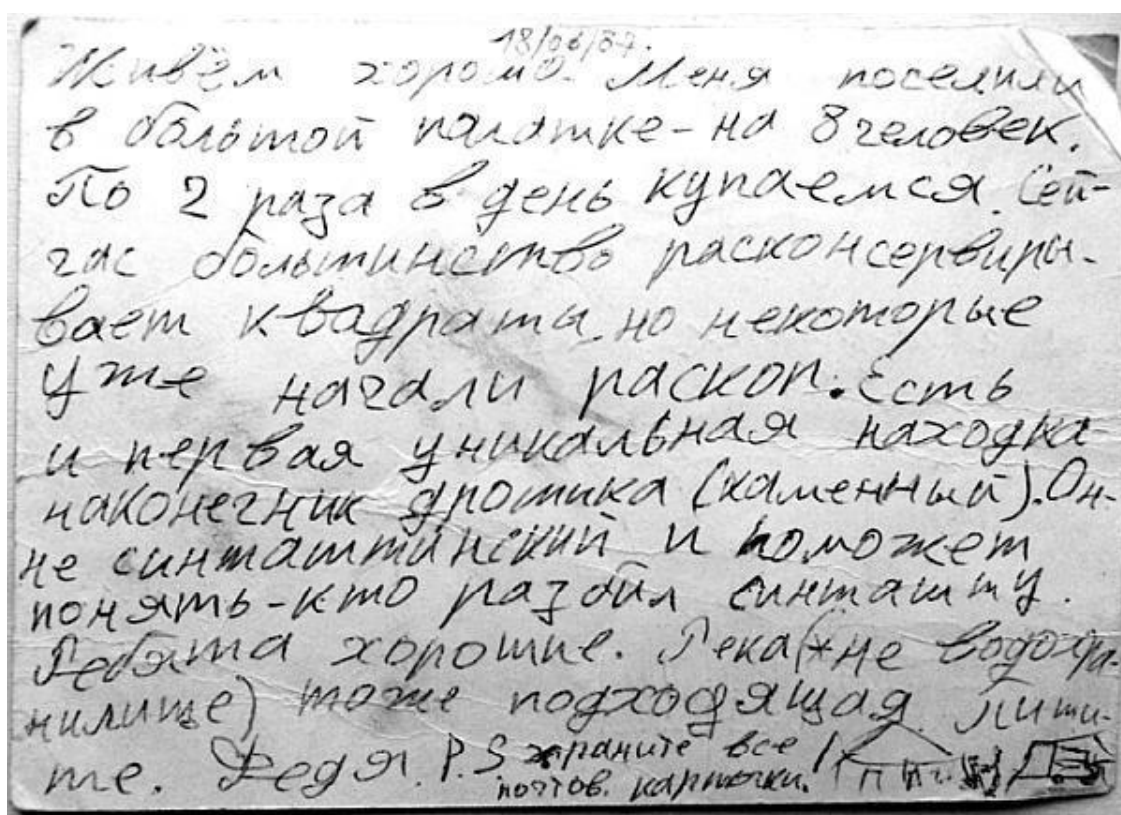 18/06/87.
Живём хорошо. Меня поселили
в большой палатке - на 8 человек.
По 2 раза в день купаемся. Сей-
час большинство расконсервиры-
вает квадраты, но некоторые
уже начали раскоп. Есть
и первая уникальная находка
наконечник дротика (каменный). Он-
не синташтинский и поможет
понять - кто разбил синташту.
Ребята хорошие. Река (*не водохра-
нилище) тоже подходящая. Пиши-
те. Федя. P.S храните все
почтов. карточки.